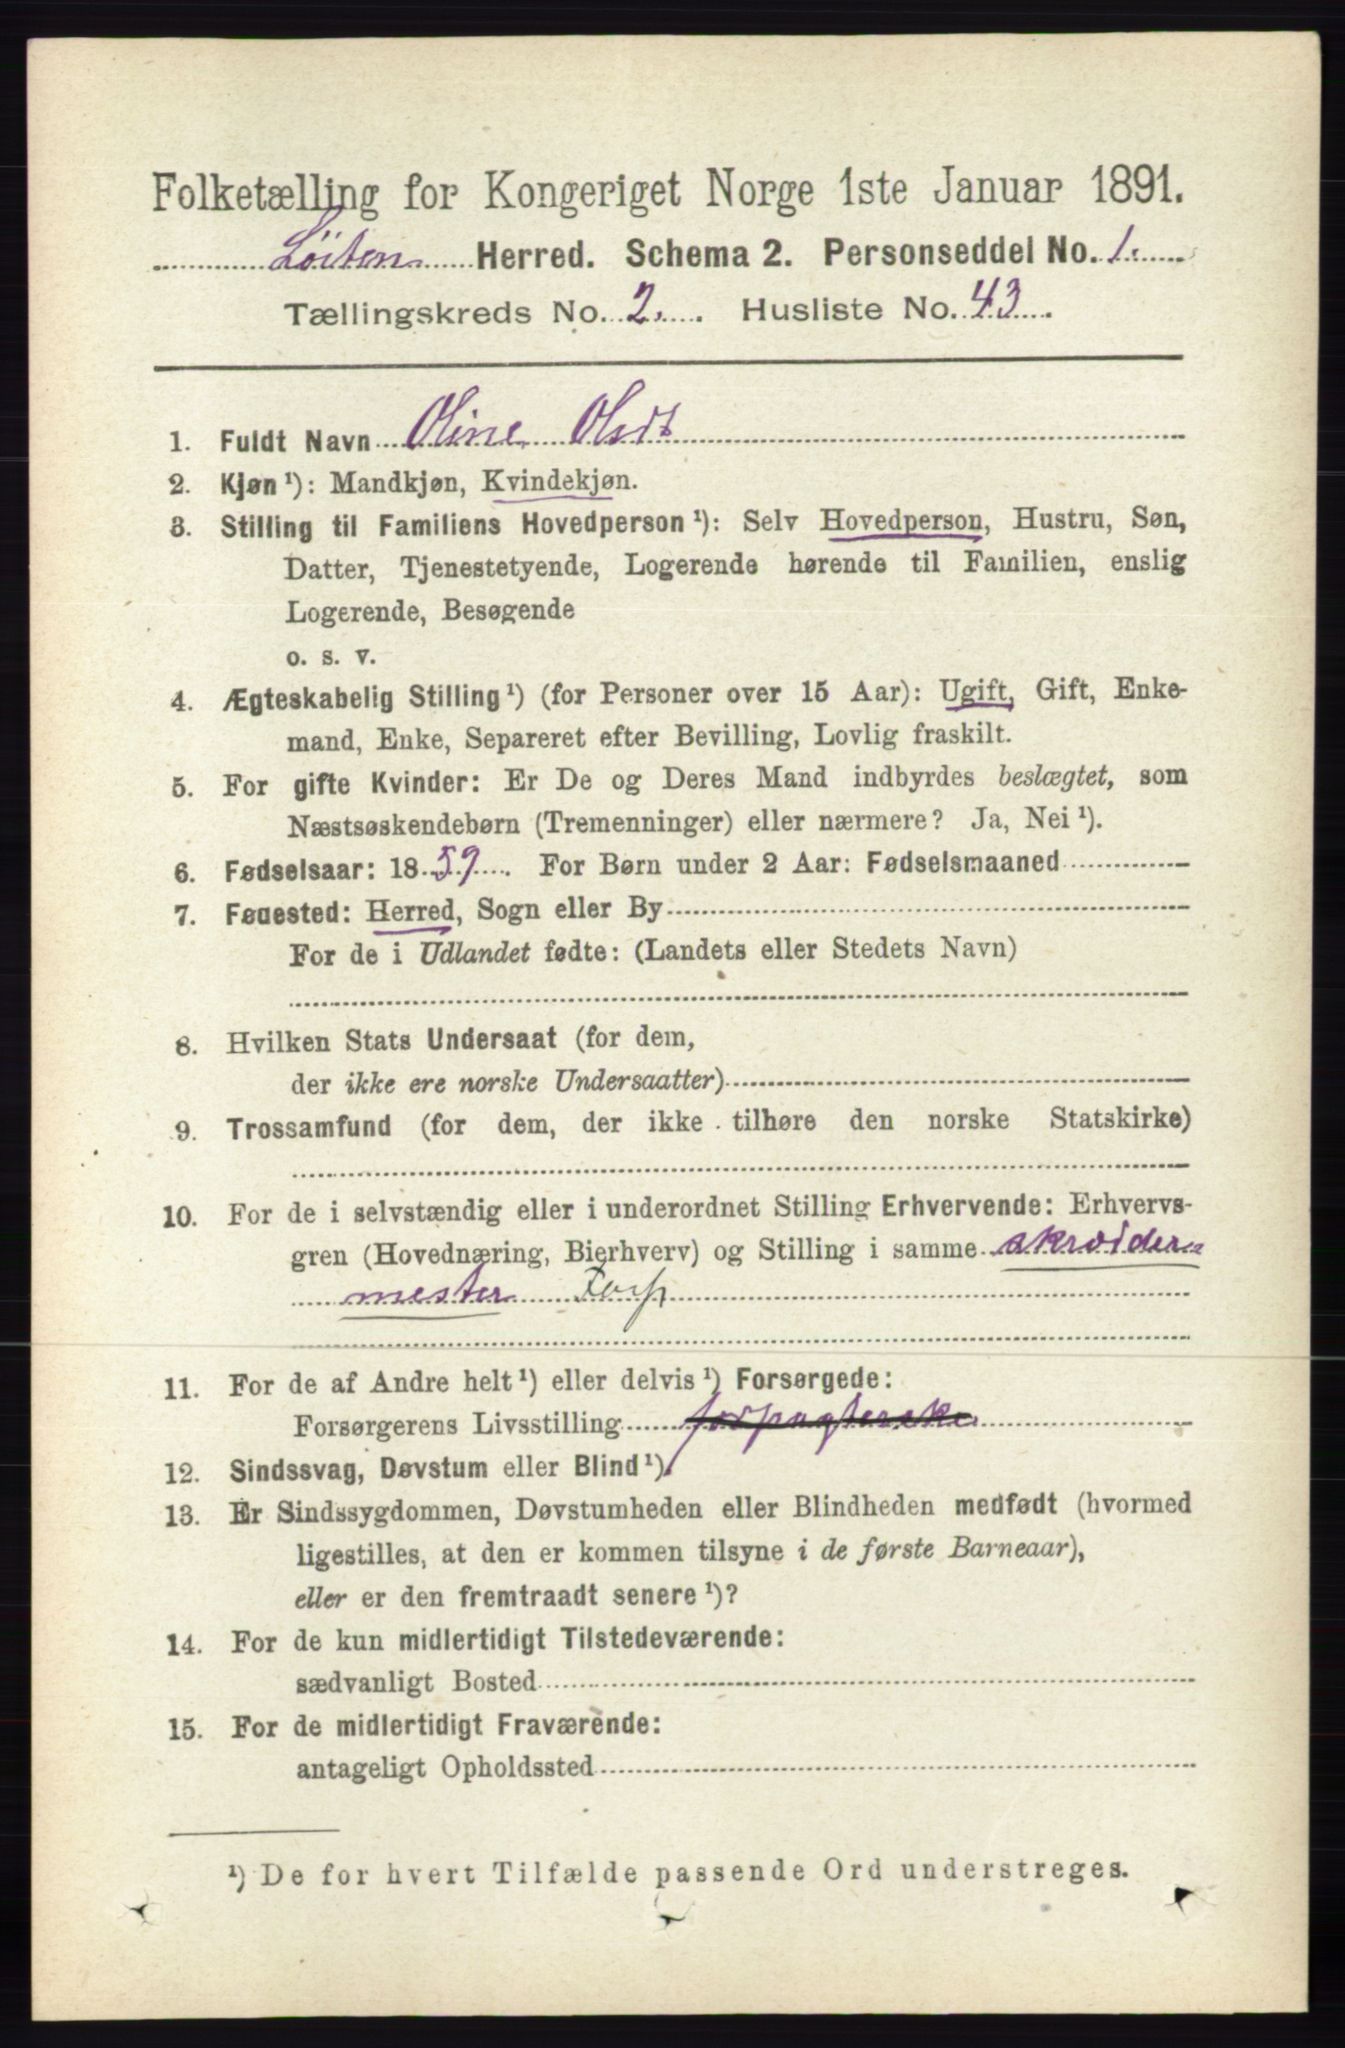 Folketælling for Kongeriget Norge 1ste Januar 1891.
Löiten Herred. Schema 2. Personseddel No. 1.
Tællingskreds No. 2. Husliste No. 43.
1. Fuldt Navn Oline Olsdt
2. Kjøn ¹): Mandkjøn, Kvindekjøn.
3. Stilling til Familiens Hovedperson ¹): Selv Hovedperson, Hustru, Søn,
Datter, Tjenestetyende, Logerende hørende til Familien, enslig
Logerende, Besøgende
o. s. v.
4. Ægteskabelig Stilling ¹) (for Personer over 15 Aar): Ugift, Gift, Enke-
mand, Enke, Separeret efter Bevilling, Lovlig fraskilt.
5. For gifte Kvinder: Er De og Deres Mand indbyrdes beslægtet, som
Næstsøskendebørn (Tremenninger) eller nærmere? Ja, Nei ¹).
6. Fødselsaar: 1859. For Børn under 2 Aar: Fødselsmaaned
7. Fødested: Herred, Sogn eller By
For de i Udlandet fødte: (Landets eller Stedets Navn)
8. Hvilken Stats Undersaat (for dem,
der ikke ere norske Undersaatter)
9. Trossamfund (for dem, der ikke tilhøre den norske Statskirke)
10. For de i selvstændig eller i underordnet Stilling Erhvervende: Erhvervs-
gren (Hovednæring, Bierhverv) og Stilling i samme skrædder
mester Forp
11. For de af Andre helt ¹) eller delvis ¹) Forsørgede:
Forsørgerens Livsstilling forpagterske
12. Sindssvag, Døvstum eller Blind ¹).
13. Er Sindssygdommen, Døvstumheden eller Blindheden medfødt (hvormed
ligestilles, at den er kommen tilsyne i de første Barneaar),
eller er den fremtraadt senere ¹)?
14. For de kun midlertidigt Tilstedeværende:
sædvanligt Bosted
15. For de midlertidigt Fraværende:
antageligt Opholdssted
¹) De for hvert Tilfælde passende Ord understreges.